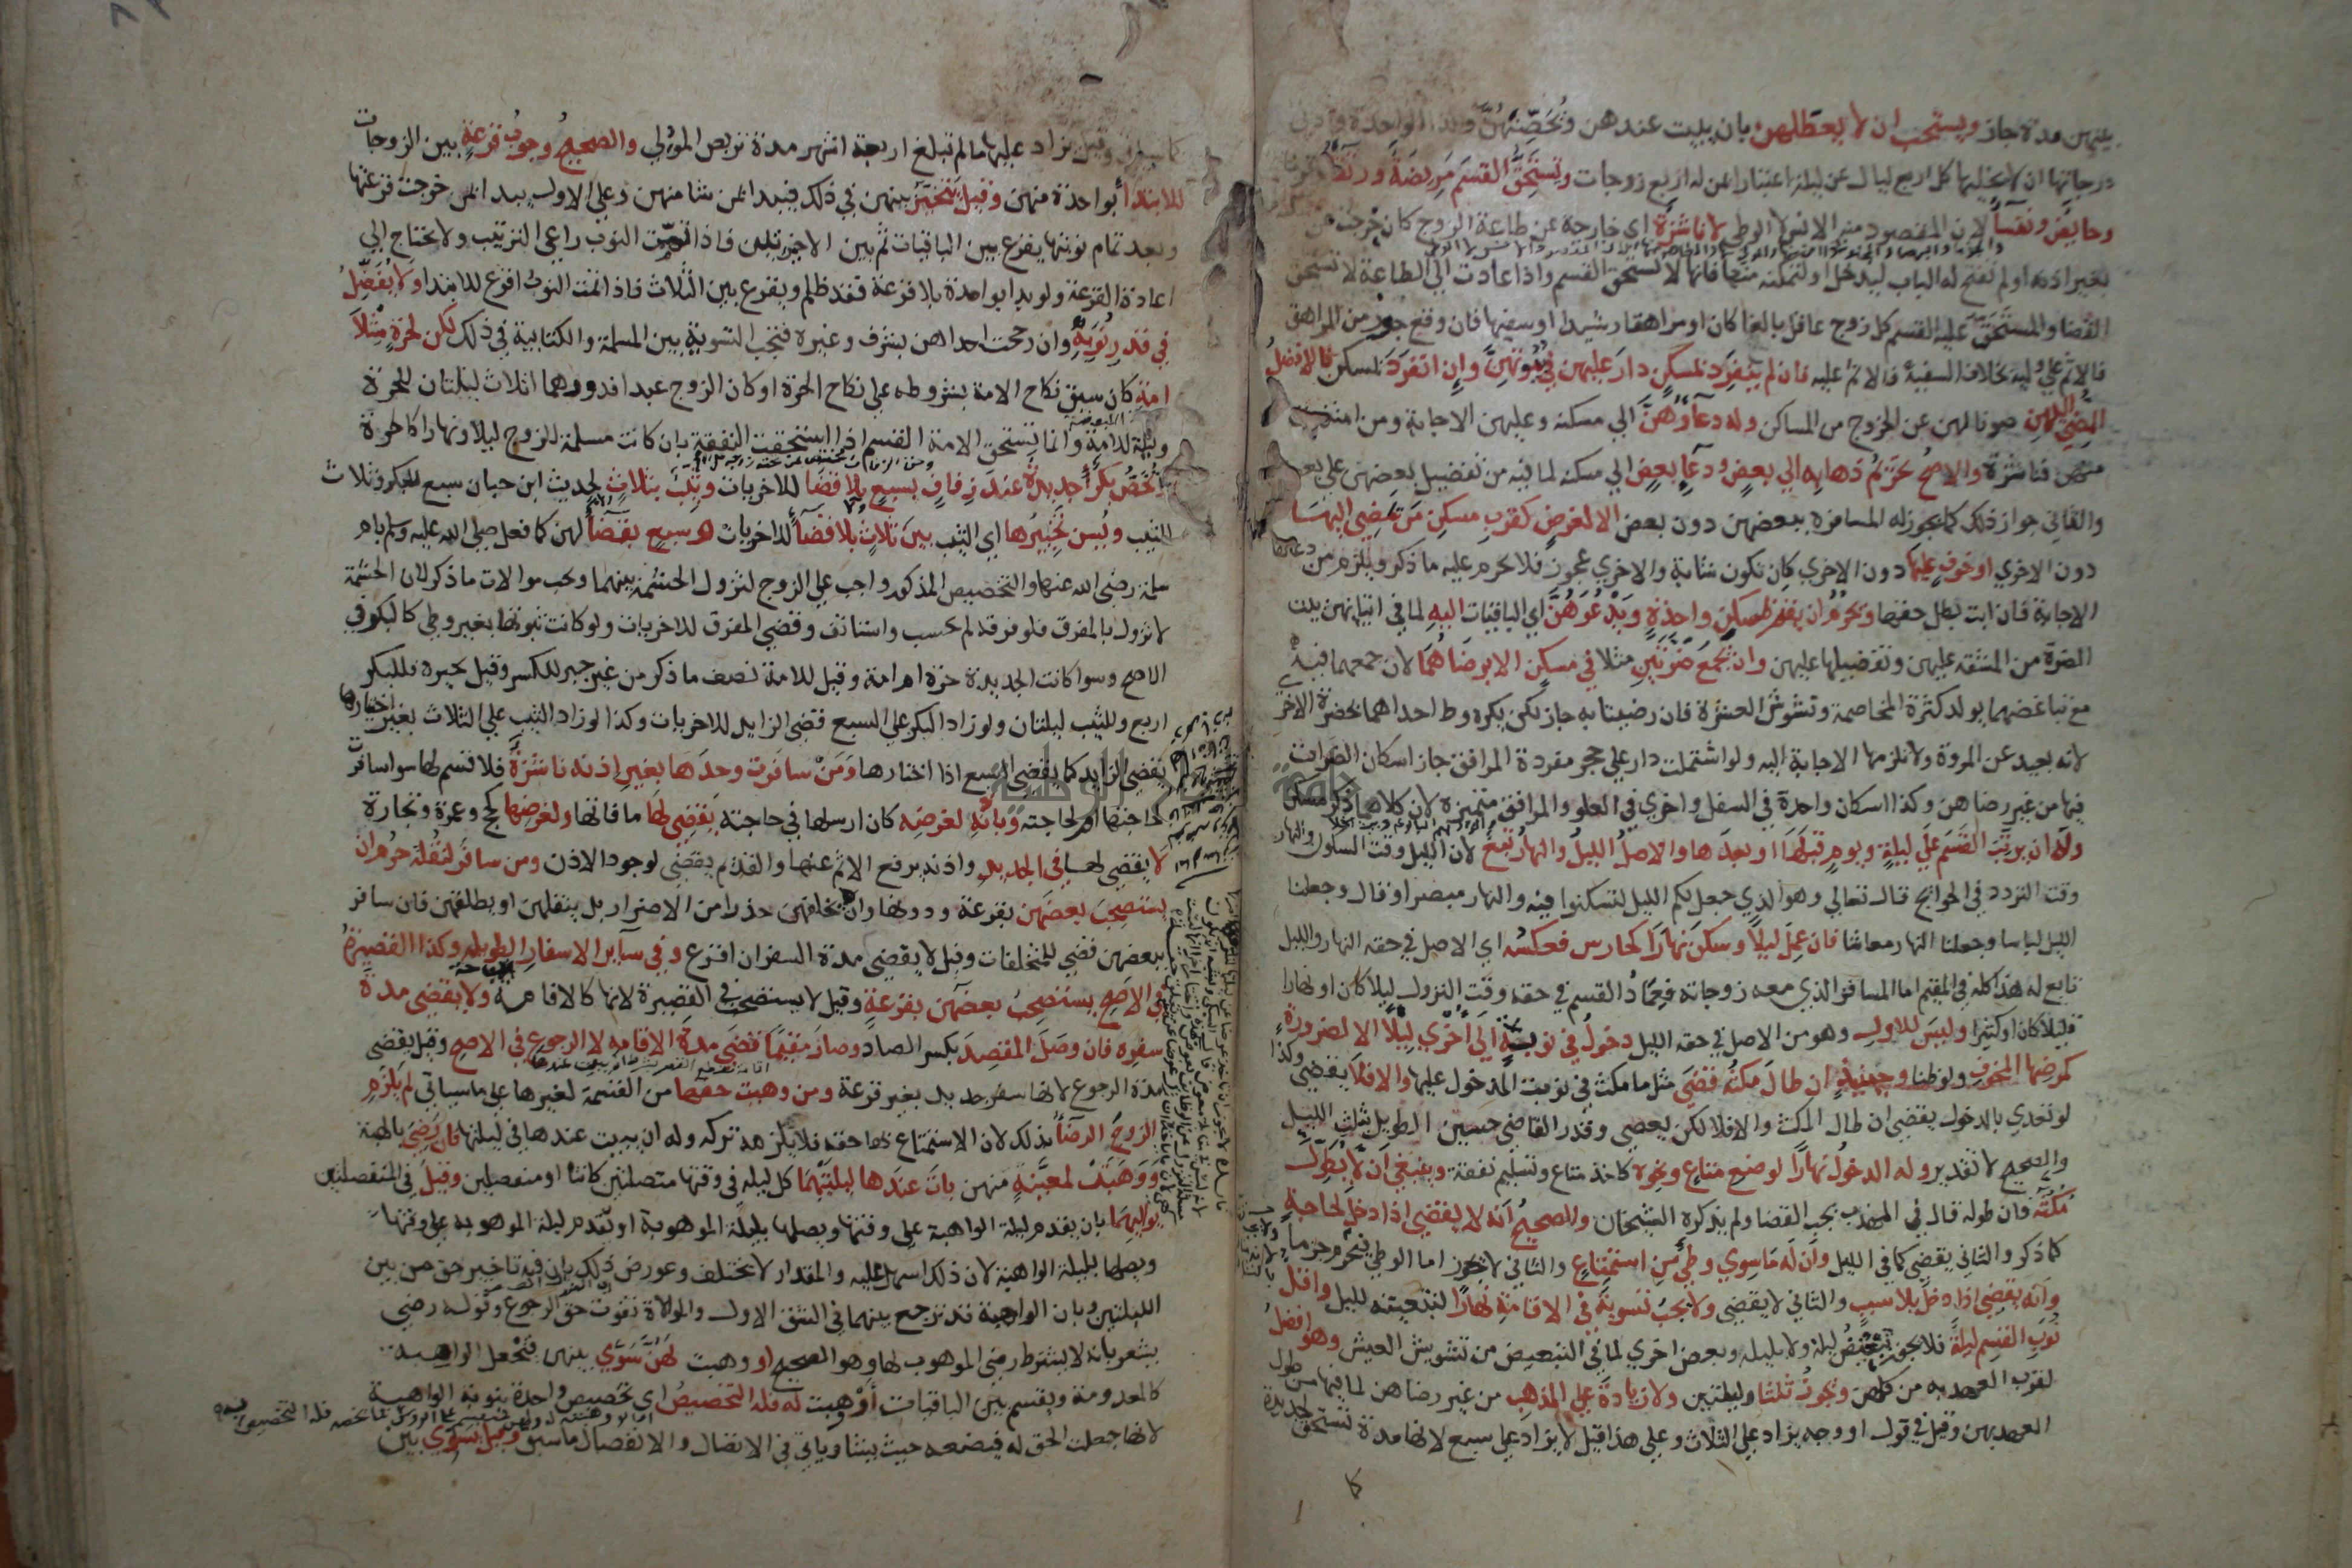 عنهن مدة جاز ويستحب ان لا يعطلهن بان يبيت عندهن ويحصنهن وكذا الواحدة وادني
درجاتها ان لا يخليها كل اربع ليال عن ليلة اعتبارا بمن له اربع زوجات وتستحق القسم مريضة ورتقا وقرنا
وحايض ونفسا لان المقصود منه الانس لا الوطي لا ناشزة اي خارجة عن طاعة الزوج كان خرجت من
بغير اذنه او لم تفتح له الباب ليدخل او لم تمكنه منها فانها لا تستحق القسم واذا عادت الي الطاعة لا تستحق
القضا والمستحق عليه القسم كل زوج عاقل بالغا كان او مراهقا رشيدا او سفيها فان وقع جور من المراهق
فالاثم علي وليه بخلاف السفيه فالاثم عليه فان لم ينفرد بمسكن دار عليهن في بيوتهن وان انفرد بمسكن فالافضل
المضي اليهن صونا لهن عن الخروج من المساكن وله دعاوهن الي مسكنه وعليهن الاجابة ومن امتنعت
منهن فناشزة والاصح تحريم ذهابه الي بعض ودعا بعض الي مسكنه لما فيه من تفضيل بعضهن علي بعض
والثاني جواز ذلك كما يجوز له المسافرة ببعضهن دون بعض الا لغرض كقرب مسكن من مضي اليها
دون الاخري او خوف عليها دون الاخري كان تكون شابة والاخري عجوز فلا يحرم عليه ما ذكر ويلزم من دعاها
الاجابة فان ابت بطل حقها ويحرم ان يقيم بمسكن واحدة ويدعوهن اي الباقيات اليه لما في اتيانهن بيت
الضرة من المشقة عليهن وتفضيلها عليهن وان يجمع ضرتين مثلا في مسكن الا برضاهما لان جمعهما فيه
مع تباغضهما يولد كثرة المخاصمة وتشوش العشرة فان رضيتا به جاز لكن يكره وطي احداهما بحضرة الاخري
لانه بعيد عن المروة ولا تلزمها الاجابة اليه ولو اشتملت دار علي حجر مفردة المرافق جاز اسكان الضرات
فيها من غير رضاهن وكذا اسكان واحدة في السفل واخري في العلو والمرافق متميزة لان كلا مما ذكر مسكن
وله ان يرتب القسم علي ليلة ويوم قبلها او بعدها والاصل الليل والنهار تبع لان الليل وقت السكون والنهار
وقت التردد في الحوايج قال تعالي وهو الذي جعل لكم الليل لتسكنوا فيه والنهار مبصرا وقال وجعلنا
الليل لباسا وجعلنا النهار معاشا فان عمل ليلا وسكن نهارا كحارس فعكسه اي الاصل في حقه النهار والليل
تابع له هذا كله في المقيم اما المسافر الذي معه زوجاته فعماد القسم في حقه وقت النزول ليلا كان او نهارا
قليلا كان او كثيرا وليس للاول وهو من الاصل في حقه الليل دخول في نوبة الي اخري ليلا الا لضرورة
كمرضها المخوف ولو ظنا وحينئذ ان طال مكثه قضي مثل ما مكث في نوبت المدخول عليها والا فلا يقضي وكذا
لو تعدي بالدخول يقضي ان طال المكث والا فلا لكن يعصي وقدر القاضي حسين الطويل بثلث الليل
والصحيح لا تقدير وله الدخول نهارا لوضع متاع ونحوه كاخذ متاع وتسليم نفقة وينبغي ان لا يطول
مكثه فان طوله قال في المهذب يجب القضا ولم يذكره الشيخان والصحيح انه لا يقضي اذا دخل لحاجة
كما ذكر والثاني يقضي كما في الليل وان له ما سوي وطي من استمتاع والثاني لا يجوز اما الوطي فيحرم جزما
وانه يقضي اذا دخل بلا سبب والثاني لا يقضي ولا يجب تسوية في الاقامة نهارا لتبعيته لليل واقل
نوب القسم ليلة فلا يجوز تبعيض ليلة ولا بليلة وبعض اخري لما في التبعيض من تشويش العيش وهو افضل
لقرب العهد به من كلهن ويجوز ثلثا وليلتين ولا زيادة علي المذهب من غير رضاهن لما فيها من طول
العهد بهن وقيل في قول او وجه يزاد علي الثلاث وعلي هذا قيل لا يزاد علي سبع لانها مدة تستحق لجديدة
كا
كما سيذكر وقيل يزاد عليها ما لم تبلغ اربعة اشهر مدة تربص المولي والصحيح وجوب قرعة بين الزوجات
للابتدا بواحدة منهن وقيل يتخير بينهن في ذلك فيبدا بمن شا منهن وعلي الاول يبدا بمن خرجت قرعتها
وبعد تمام نوبتها يقرع بين الباقيات ثم بين الاخيرتين فاذا تمت النوب راعي الترتيب ولا يحتاج الي
اعادة القرعة ولو بدا بواحدة بلا قرعة فقد ظلم ويقرع بين الثلاث فاذا تمت النوب اقرع للابتدا ولا يفضل
في قدر نوبة وان رجحت احداهن بشرف وغيره فتجب التسوية بين المسلمة والكتابية في ذلك لكن لحرة مثلا
امة كان سبق نكاح الامة بشروطه علي نكاح الحرة او كان الزوج عبدا فدورهما اثلاث ليلتان للحرة
وليلة للامة وانما تستحق الامة القسم اذا استحقت النفقة بان كانت مسلمة للزوج ليلا ونهارا كالحرة
وتخص بكر جديدة عند زفاف بسبع بلا قضا للاخريات وثيب بثلاث لحديث ابن حبان سبع للبكر وثلاث
للثيب ويسن تخييرها اي الثيب بين ثلاث بلا قضا للاخريات وسبع بقضا لهن كما فعل صلي الله عليه وسلم بام
سلمة رضي الله عنها والتخصيص المذكور واجب علي الزوج لتزول الحشمة بينهما ويجب موالات ما ذكر لان الحشمة
لا تزول بالمفرق فلو فرقه لم يحسب واستانف وقضي المفرق للاخريات ولو كانت ثيوبتها بغير وطي كالبكر في
الاصح وسوا كانت الجديدة حرة ام امة وقيل للامة نصف ما ذكر من غير جبر للكسر وقيل بجبره فللبكر
اربع وللثيب ليلتان ولو زاد البكر علي السبع قضي الزايد للاخريات وكذا لو زاد الثيب علي الثلاث بغير اختيارها
يقضي الزايد كما يقضي السبع اذا اختارها ومن سافرت وحدها بغير اذنه ناشزة فلا قسم لها سوا سافرت
لحاجتها ام لحاجته وباذنه لغرضه كان ارسلها في حاجته يقضي لها ما فاتها ولغرضها كحج وعمرة وتجارة
لا يقضي لها في الجديد واذنه يرفع الاثم عنها والقديم يقضي لوجود الاذن ومن سافر لنقلة حرم ان
يستصحب بعضهن بقرعة ودونها وان يخلفهن حذرا من الاضرار بل ينقلهن او يطلقهن فان سافر
ببعضهن قضي للمتخلفات وقيل لا يقضي مدة السفر ان اقرع وفي ساير الاسفار الطويلة وكذا القصيرة
في الاصح يستصحب بعضهن بقرعة وقيل لا يستصحب في القصيرة لانها كالاقامة ولا يقضي مدة
سفره فان وصل المقصد بكسر الصاد وصار مقيما قضي مدة الاقامة لا الرجوع في الاصح وقيل يقضي
مدة الرجوع لانها سفر جديد بغير قرعة ومن وهبت حقها من القسمة لغيرها علي ما سياتي لم يلزم
الزوج الرضا بذلك لان الاستمتاع بها حقه فلا يلزمه تركه وله ان يبيت عندها في ليلتها فان رضي بالهبة
ووهبت لمعينة منهن بات عندها ليلتيهما كل ليلة في وقتها متصلتين كانتا او منفصلتين وقيل في المنفصلتين
يواليهما بان يقدم ليلة الواهبة علي وقتها ويصلها بليلة الموهوبة او يقدم ليلة الموهوبة علي وقتها
ويصلها بليلة الواهبة لان ذلك اسهل عليه والمقدار لا يختلف وعورض ذلك بان فيه تاخير حق من بين
الليلتين وبان الواهبة قد ترجع بينهما في الشق الاول والموالاة تفوت حق الرجوع وقوله رضي
يشعر بانه لا يشترط رضي الموهوب لها وهو الصحيح او وهبت لهن سوي بينهن فتجعل الواهبة
كالمعدومة ويقسم بين الباقيات او وهبت له فله التخصيص اي تخصيص واحدة بنوبة الواهبة
لانها جعلت الحق له فيضعه حيث يشا وياتي في الاتصال والانفصال ما سبق وقيل يسوي بين